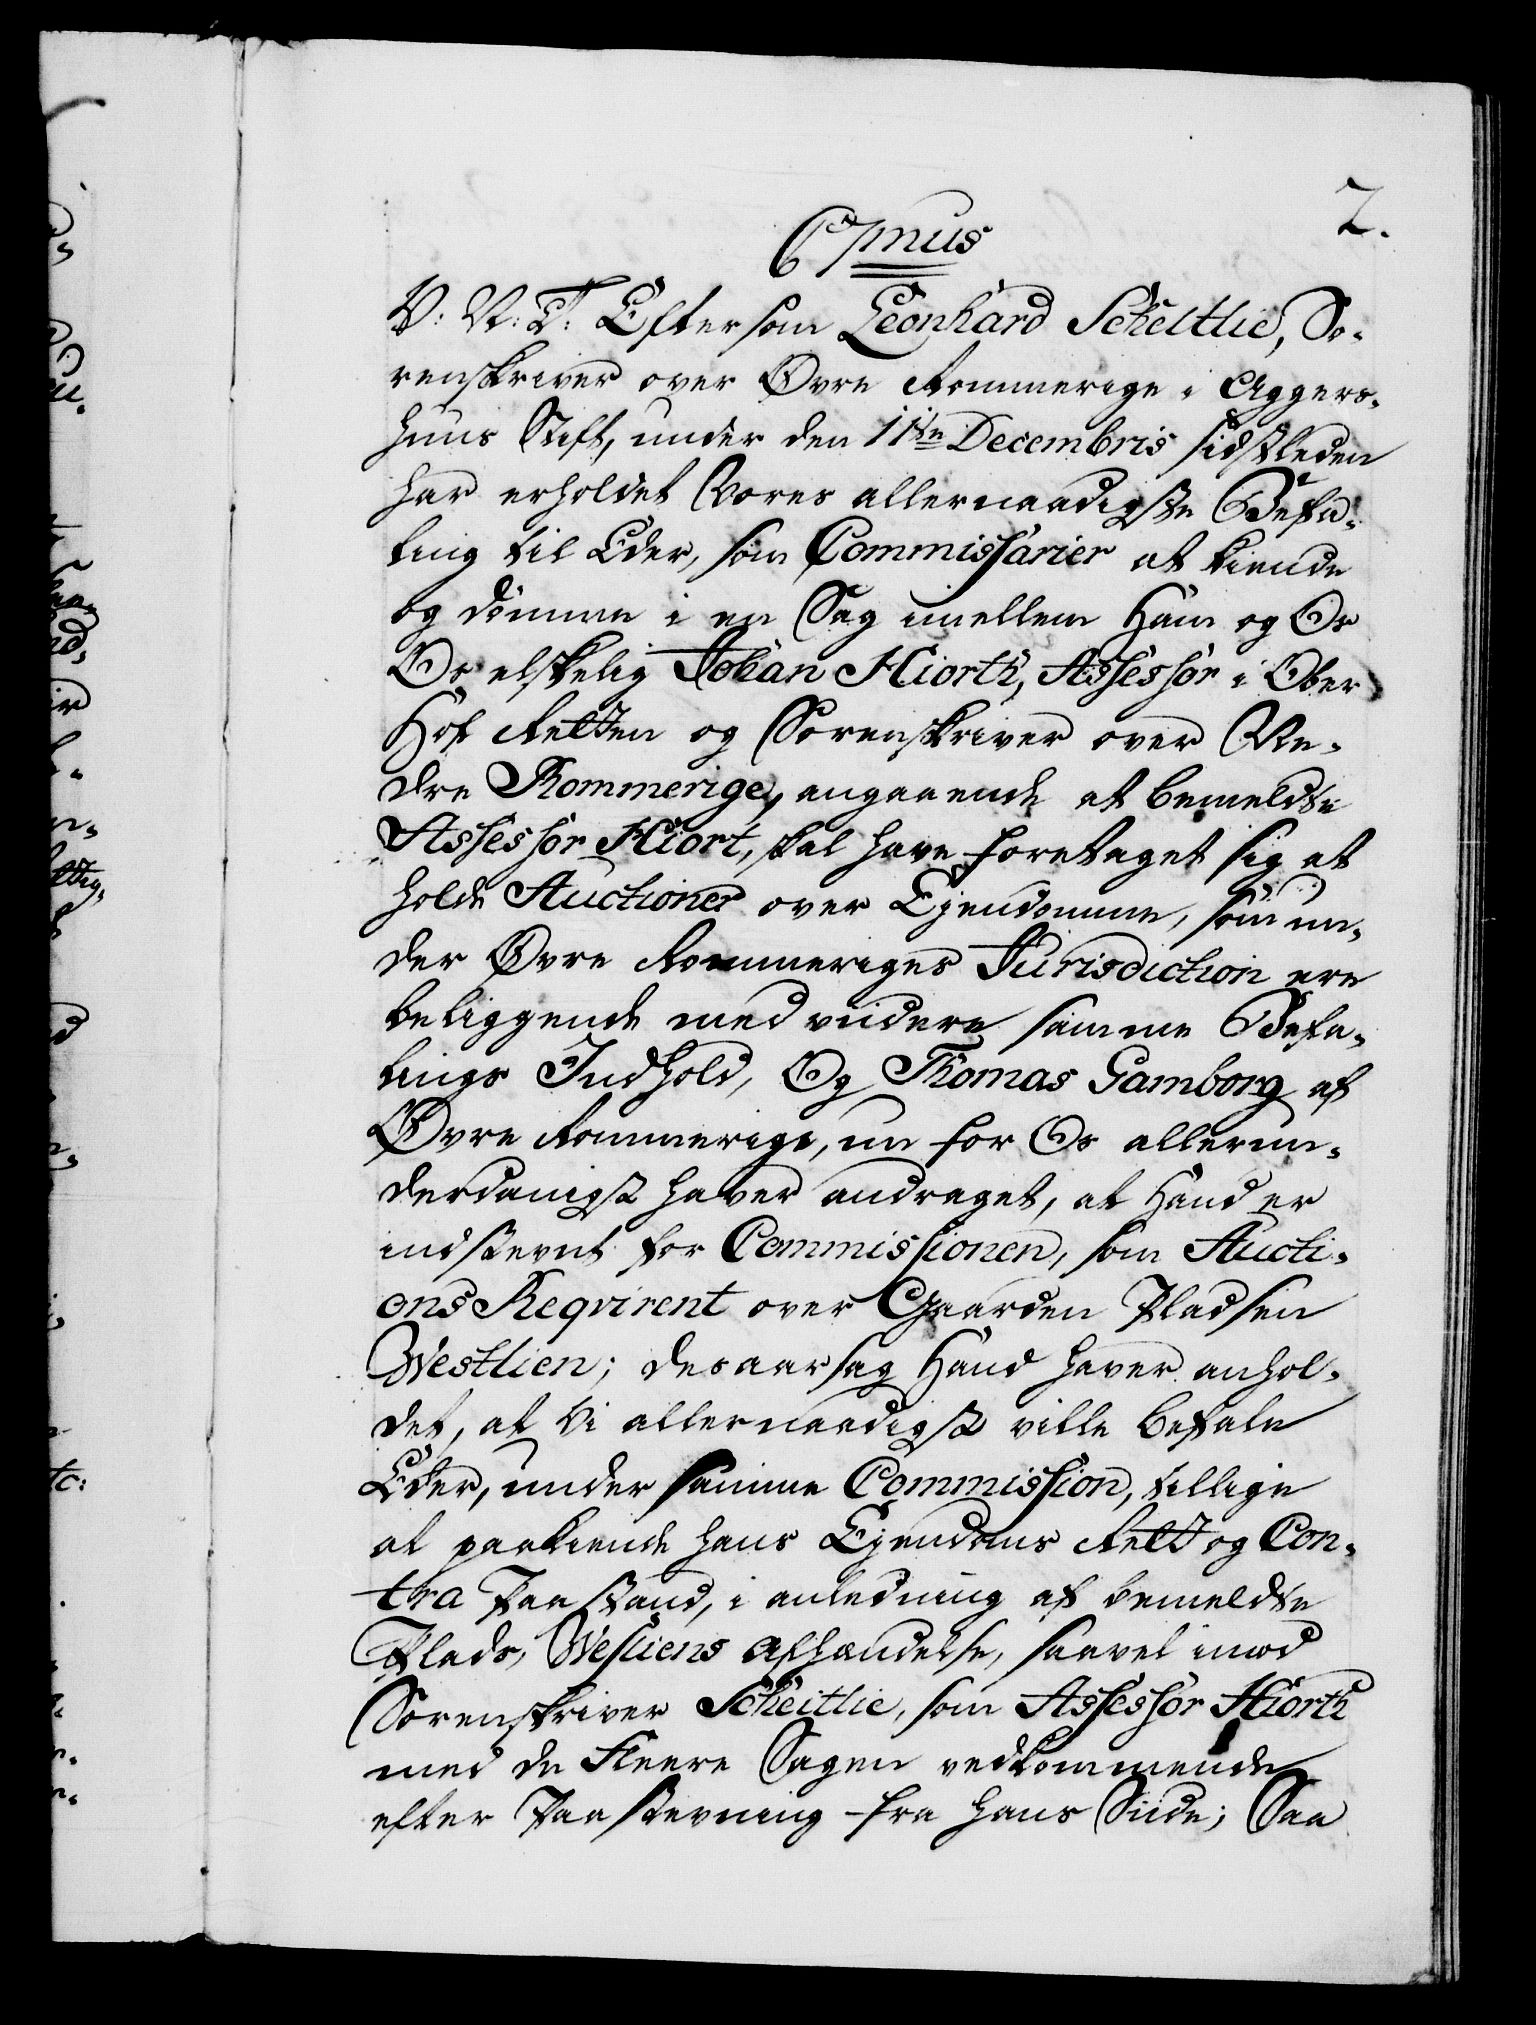 2.
C 7mus
V: V: T: Eftersom Leonhard Scheitlie, So-
renskriver over Øvre Rommerige i Aggers-
huus Stift, under den 11te Decembris sidstleden
har erholdet Vores allernaadigste Befa-
ling til Eder, som Commissarier at kiende
og dömme i en Sag imellem Ham og Os
Os elskelig Johan Hiorth, Assessor i Ober
Hof Retten og Sorenskriver over Ne-
dre Rommerige, angaaende at bemeldte
Assessor Hiort, skal have foretaget sig at
holde Auctioner over Ejendomme, som un-
der Øvre Rommeriges Jurisdiction ere
beliggende med viidere samme Befa-
lings Indhold, Og Thomas Gamborg af
Øvre Rommerige, nu for Os allerun-
derdanigst haver andraget, at Hand er
indstevnt for Commissionen, som Aucti-
ons Reqvirent over Gaarden Pladsen
Westlien; desaarsag Hand haver anhol-
det, at Vi allernaadigst ville befale
Eder, under samme Commission, tillige
at paakiende hans Ejendoms Rett og Con-
tra Paastand, i anledning af bemeldte
Plads, Wesliens Afhændelse, saavel imod
Sorenskriver Scheitlie, som Assessor Hiorth
med de Fleere Sagen vedkommende
efter Paastevning fra hans Siide; Saa